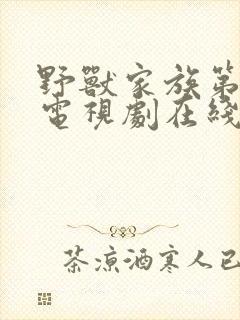 野獸家族第
電視劇在綫
茶涼酒寒人已